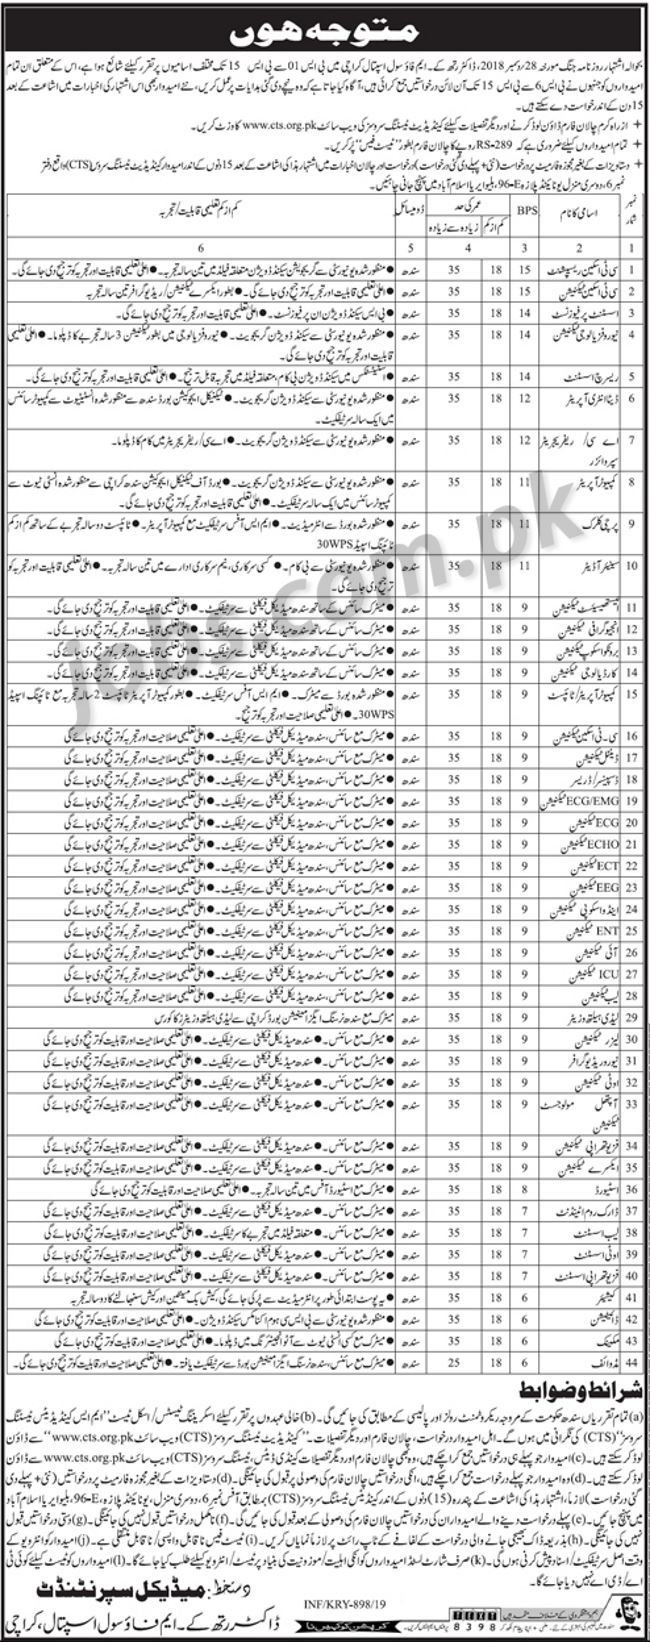 متوجہ ہوں
بحوالہ اشتہار روزنامہ جنگ مورخہ 28 دسمبر 2018، ڈاکٹر رتھ کے۔ ایم فاؤ سول اسپتال کراچی میں بی ایس 01 سے بی ایس 15 تک مختلف اسامیوں پر تقرر کیلئے شائع ہوا ہے، اس کے متعلق ان تمام
امیدواروں کو جنہوں نے بی ایس 6 سے بی ایس 15 تک آن لائن درخواستیں جمع کرائی ہیں، آگاہ کیا جاتا ہے کہ وہ نیچے دی گئی ہدایات پر عمل کریں، نئے امیدوار بھی اس اشتہار کی اخبارات میں اشاعت کے بعد
15 دن کے اندر درخواست دے سکتے ہیں۔
ازراہ کرم چالان فارم ڈاؤن لوڈ کرنے اور دیگر تفصیلات کیلئے کینڈیڈیٹ ٹیسٹنگ سروسز کی ویب سائٹ www.cts.org.pk کا وزٹ کریں۔
تمام امیدواروں کیلئے ضروری ہے کہ RS-289 روپے کا چالان فارم بطور "ٹیسٹ فیس" پُر کریں۔
دستاویزات کے بغیر مجوزہ فارمیٹ پر درخواست (نئی + پہلے دی گئی درخواست) درخواست اور چالان اخبارات میں اشتہار ہذا کی اشاعت کے بعد 15 دنوں کے اندر امیدوار کینڈیڈیٹ ٹیسٹنگ سروسز (CTS) واقع دفتر
نمبر 6، دوسری منزل یونائیٹڈ پلازہ 96-E، بلیو ایریا اسلام آباد میں پہنچ جانی چاہئیں۔
نمبر شمار اسامی کا نام BPS عمر کی حد کم از کم زیادہ سے زیادہ ڈومیسائل کم از کم تعلیمی قابلیت/ تجربہ
1 2 3 4 5 6
1 سی ٹی اسکین ریسپشنسٹ 15 18 35 سندھ منظور شدہ یونیورسٹی سے گریجویشن سیکنڈ ڈویژن متعلقہ فیلڈ میں تین سالہ تجربہ۔ اعلیٰ تعلیمی قابلیت اور تجربہ کو ترجیح دی جائے گی۔
2 سی ٹی اسکین ٹیکنیشن 15 18 35 سندھ اعلیٰ تعلیمی قابلیت اور تجربہ کو ترجیح دی جائے گی۔ بطور ایکسرے ٹیکنیشن/ ریڈیوگرافر تین سالہ تجربہ
3 اسسٹنٹ پرفیوزنسٹ 14 18 35 سندھ بی ایس سیکنڈ ڈویژن ان پرفیوزنسٹ۔ اعلیٰ تعلیمی قابلیت اور تجربہ کو ترجیح دی جائے گی۔
4 نیورو فزیالوجی ٹیکنیشن 14 18 35 سندھ منظور شدہ یونیورسٹی سے سیکنڈ ڈویژن گریجویٹ۔ نیورو فزیالوجی میں بطور ٹیکنیشن 3 سالہ تجربے کا ڈپلوما۔ اعلیٰ تعلیمی
قابلیت اور تجربہ کو ترجیح دی جائے گی۔
5 ریسرچ اسسٹنٹ 14 18 35 سندھ اسٹیٹسٹکس میں سیکنڈ ڈویژن بی کام، متعلقہ فیلڈ میں تجربہ قابل ترجیح۔ اعلیٰ تعلیمی قابلیت اور تجربہ کو ترجیح دی جائے گی۔
6 ڈیٹا انٹری آپریٹر 12 18 35 سندھ منظور شدہ یونیورسٹی سے سیکنڈ ڈویژن گریجویٹ۔ ٹیکنیکل ایجوکیشن بورڈ سندھ سے منظور شدہ انسٹیٹیوٹ سے کمپیوٹر سائنس
میں ایک سالہ سرٹیفکیٹ۔
7 اے سی/ ریفریجریٹر سپروائزر 12 18 35 سندھ منظور شدہ یونیورسٹی سے سیکنڈ ڈویژن گریجویٹ۔ اے سی/ ریفریجریٹر میں کام کا ڈپلوما۔
8 کمپیوٹر آپریٹر 11 18 35 سندھ منظور شدہ یونیورسٹی سے سیکنڈ ڈویژن گریجویٹ۔ بورڈ آف ٹیکنیکل ایجوکیشن سندھ کراچی سے منظور شدہ انسٹی ٹیوٹ سے
کمپیوٹر سائنس میں ایک سالہ سرٹیفکیٹ۔ اعلیٰ تعلیمی قابلیت اور تجربہ کو ترجیح دی جائے گی۔
9 پرچی کلرک 11 18 35 سندھ منظور شدہ بورڈ سے انٹرمیڈیٹ۔ ایم ایس آفس سرٹیفکیٹ مع کمپیوٹر آپریٹر۔ ٹائپسٹ دو سالہ تجربے کے ساتھ کم از کم
ٹائپنگ اسپیڈ 30WPS
10 سینئر آڈیٹر 11 18 35 سندھ منظور شدہ یونیورسٹی سے بی کام۔ کسی سرکاری، نیم سرکاری ادارے میں تین سالہ تجربہ۔ اعلیٰ تعلیمی قابلیت اور تجربہ کو
ترجیح دی جائے گی۔
11 انستھیسیسٹ ٹیکنیشن 9 18 35 سندھ میٹرک سائنس کے ساتھ سندھ میڈیکل فیکلٹی سے سرٹیفکیٹ۔ اعلیٰ تعلیمی قابلیت اور تجربہ کو ترجیح دی جائے گی۔
12 انجیوگرافی ٹیکنیشن 9 18 35 سندھ میٹرک سائنس کے ساتھ سندھ میڈیکل فیکلٹی سے سرٹیفکیٹ۔ اعلیٰ تعلیمی قابلیت اور تجربہ کو ترجیح دی جائے گی۔
13 برونکواسکوپ ٹیکنیشن 9 18 35 سندھ میٹرک سائنس کے ساتھ سندھ میڈیکل فیکلٹی سے سرٹیفکیٹ۔ اعلیٰ تعلیمی قابلیت اور تجربہ کو ترجیح دی جائے گی۔
14 کارڈیالوجی ٹیکنیشن 9 18 35 سندھ میٹرک سائنس کے ساتھ سندھ میڈیکل فیکلٹی سے سرٹیفکیٹ۔ اعلیٰ تعلیمی قابلیت اور تجربہ کو ترجیح دی جائے گی۔
15 کمپیوٹر آپریٹر/ ٹائپسٹ 9 18 35 سندھ منظور شدہ بورڈ سے میٹرک۔ ایم ایس آفس سرٹیفکیٹ۔ بطور کمپیوٹر آپریٹر ٹائپسٹ 2 سالہ تجربہ مع ٹائپنگ اسپیڈ
30WPS۔ اعلیٰ تعلیمی صلاحیت اور تجربہ کو ترجیح۔
16 سی۔ ٹی اسکین ٹیکنیشن 9 18 35 سندھ میٹرک مع سائنس، سندھ میڈیکل فیکلٹی سے سرٹیفکیٹ۔ اعلیٰ تعلیمی صلاحیت اور تجربہ کو ترجیح دی جائے گی
17 ڈینٹل ٹیکنیشن 9 18 35 سندھ میٹرک مع سائنس، سندھ میڈیکل فیکلٹی سے سرٹیفکیٹ۔ اعلیٰ تعلیمی صلاحیت اور تجربہ کو ترجیح دی جائے گی
18 ڈسپنسر/ ڈریسر 9 18 35 سندھ میٹرک مع سائنس، سندھ میڈیکل فیکلٹی سے سرٹیفکیٹ۔ اعلیٰ تعلیمی صلاحیت اور تجربہ کو ترجیح دی جائے گی
19 ECG/EMG ٹیکنیشن 9 18 35 سندھ میٹرک مع سائنس، سندھ میڈیکل فیکلٹی سے سرٹیفکیٹ۔ اعلیٰ تعلیمی صلاحیت اور تجربہ کو ترجیح دی جائے گی
20 ECG ٹیکنیشن 9 18 35 سندھ میٹرک مع سائنس، سندھ میڈیکل فیکلٹی سے سرٹیفکیٹ۔ اعلیٰ تعلیمی صلاحیت اور تجربہ کو ترجیح دی جائے گی
21 ECHO ٹیکنیشن 9 18 35 سندھ میٹرک مع سائنس، سندھ میڈیکل فیکلٹی سے سرٹیفکیٹ۔ اعلیٰ تعلیمی صلاحیت اور تجربہ کو ترجیح دی جائے گی
22 ECT ٹیکنیشن 9 18 35 سندھ میٹرک مع سائنس، سندھ میڈیکل فیکلٹی سے سرٹیفکیٹ۔ اعلیٰ تعلیمی صلاحیت اور تجربہ کو ترجیح دی جائے گی
23 EEG ٹیکنیشن 9 18 35 سندھ میٹرک مع سائنس، سندھ میڈیکل فیکلٹی سے سرٹیفکیٹ۔ اعلیٰ تعلیمی صلاحیت اور تجربہ کو ترجیح دی جائے گی
24 اینڈواسکوپی ٹیکنیشن 9 18 35 سندھ میٹرک مع سائنس، سندھ میڈیکل فیکلٹی سے سرٹیفکیٹ۔ اعلیٰ تعلیمی صلاحیت اور تجربہ کو ترجیح دی جائے گی
25 ENT ٹیکنیشن 9 18 35 سندھ میٹرک مع سائنس، سندھ میڈیکل فیکلٹی سے سرٹیفکیٹ۔ اعلیٰ تعلیمی صلاحیت اور تجربہ کو ترجیح دی جائے گی
26 آئی ٹیکنیشن 9 18 35 سندھ میٹرک مع سائنس، سندھ میڈیکل فیکلٹی سے سرٹیفکیٹ۔ اعلیٰ تعلیمی صلاحیت اور تجربہ کو ترجیح دی جائے گی
27 ICU ٹیکنیشن 9 18 35 سندھ میٹرک مع سائنس، سندھ میڈیکل فیکلٹی سے سرٹیفکیٹ۔ اعلیٰ تعلیمی صلاحیت اور تجربہ کو ترجیح دی جائے گی
28 لیب ٹیکنیشن 9 18 35 سندھ میٹرک مع سائنس، سندھ میڈیکل فیکلٹی سے سرٹیفکیٹ۔ اعلیٰ تعلیمی صلاحیت اور تجربہ کو ترجیح دی جائے گی
29 لیڈی ہیلتھ وزیٹر 9 18 35 سندھ میٹرک مع سندھ نرسنگ ایگزامنیشن بورڈ کراچی سے لیڈی ہیلتھ وزیٹرز کا کورس
30 لیزر ٹیکنیشن 9 18 35 سندھ میٹرک مع سائنس۔ سندھ میڈیکل فیکلٹی سے سرٹیفکیٹ۔ اعلیٰ تعلیمی صلاحیت اور قابلیت کو ترجیح دی جائے گی
31 نیورو ریڈیوگرافر 9 18 35 سندھ میٹرک مع سائنس۔ سندھ میڈیکل فیکلٹی سے سرٹیفکیٹ۔ اعلیٰ تعلیمی صلاحیت اور قابلیت کو ترجیح دی جائے گی
32 اوٹی ٹیکنیشن 9 18 35 سندھ میٹرک مع سائنس۔ سندھ میڈیکل فیکلٹی سے سرٹیفکیٹ۔ اعلیٰ تعلیمی صلاحیت اور قابلیت کو ترجیح دی جائے گی
33 آپتھل مولوجسٹ ٹیکنیشن 9 18 35 سندھ میٹرک مع سائنس۔ سندھ میڈیکل فیکلٹی سے سرٹیفکیٹ۔ اعلیٰ تعلیمی صلاحیت اور قابلیت کو ترجیح دی جائے گی
34 فزیوتھراپی ٹیکنیشن 9 18 35 سندھ میٹرک مع سائنس۔ سندھ میڈیکل فیکلٹی سے سرٹیفکیٹ۔ اعلیٰ تعلیمی صلاحیت اور قابلیت کو ترجیح دی جائے گی
35 ایکسرے ٹیکنیشن 9 18 35 سندھ میٹرک مع سائنس۔ سندھ میڈیکل فیکلٹی سے سرٹیفکیٹ۔ اعلیٰ تعلیمی صلاحیت اور قابلیت کو ترجیح دی جائے گی
36 اسٹیورڈ 8 18 35 سندھ میٹرک مع اسٹیورڈ آفس میں تین سالہ تجربہ۔ اعلیٰ تعلیمی صلاحیت اور قابلیت کو ترجیح دی جائے گی
37 ڈارک روم اٹینڈنٹ 7 18 35 سندھ میٹرک مع سائنس۔ سندھ میڈیکل فیکلٹی سے سرٹیفکیٹ۔ اعلیٰ تعلیمی صلاحیت اور قابلیت کو ترجیح دی جائے گی
38 لیب اسسٹنٹ 7 18 35 سندھ میٹرک مع سائنس۔ متعلقہ فیلڈ میں تجربے کا سرٹیفکیٹ۔ اعلیٰ تعلیمی صلاحیت اور قابلیت کو ترجیح دی جائے گی
39 اوٹی اسسٹنٹ 7 18 35 سندھ میٹرک مع سائنس۔ سندھ میڈیکل فیکلٹی سے سرٹیفکیٹ۔ اعلیٰ تعلیمی صلاحیت اور قابلیت کو ترجیح دی جائے گی
40 فزیوتھراپی اسسٹنٹ 7 18 35 سندھ میٹرک مع سائنس۔ سندھ میڈیکل فیکلٹی سے سرٹیفکیٹ۔ اعلیٰ تعلیمی صلاحیت اور قابلیت کو ترجیح دی جائے گی
41 کیشیئر 6 18 35 سندھ یہ پوسٹ ابتدائی طور پر انٹرمیڈیٹ سے پُر کی جائے گی، کیش بک میٹنین اور کیش سنبھالنے کا دو سالہ تجربہ
42 ڈائٹیشن 6 18 35 سندھ منظور شدہ یونیورسٹی سے بی ایس سی ہوم اکنامکس سیکنڈ ڈویژن۔ اعلیٰ تعلیمی صلاحیت اور قابلیت کو ترجیح دی جائے گی۔
43 مکینک 6 18 35 سندھ میٹرک مع کسی انسٹی ٹیوٹ سے آٹو انجینئرنگ میں ڈپلوما۔ اعلیٰ تعلیمی صلاحیت اور قابلیت کو ترجیح دی جائے گی
44 مڈوائف 6 18 25 سندھ میٹرک مع سائنس، سندھ نرسنگ ایگزامنیشن بورڈ سے سرٹیفکیٹ یافتہ۔ اعلیٰ تعلیمی صلاحیت اور قابلیت کو ترجیح دی جائے گی۔
شرائط و ضوابط
(a) تمام تقرریاں سندھ حکومت کے مروجہ ریکروٹمنٹ رولز اور پالیسی کے مطابق کی جائیں گی۔ (b) خالی عہدوں پر تقرر کیلئے اسکریننگ ٹیسٹس/ اسکل ٹیسٹ "ایم ایس کینڈیڈیٹس ٹیسٹنگ
سروسز" (CTS) کی نگرانی میں ہوں گے۔ اہل امیدوار درخواست، چالان فارم اور دیگر تفصیلات۔ "کینڈیڈیٹ ٹیسٹنگ سروسز (CTS) ویب سائٹ www.cts.org.pk" سے ڈاؤن
لوڈ کر سکتے ہیں۔ (c) امیدوار جو پہلے ہی درخواستیں جمع کرا چکے ہیں، وہ بھی چالان فارم اور دیگر تفصیلات کینڈی ڈیٹس، ٹیسٹنگ سروسز (CTS) ویب سائٹ www.cts.org.pk سے ڈاؤن
میں پہنچ جائیں۔ (e) پہلے درخواست دینے والے امیدواران کی درخواستیں چالان فارم کی وصولی کے بعد قبول کی جائیں گی۔ (f) نامکمل درخواستیں قبول نہیں کی جائینگی۔
دستخط: میڈیکل سپرنٹنڈنٹ
ڈاکٹر رتھ کے۔ ایم فاؤ سول اسپتال، کراچی
INF/KRY-898/19
8398
jobs.com.pk